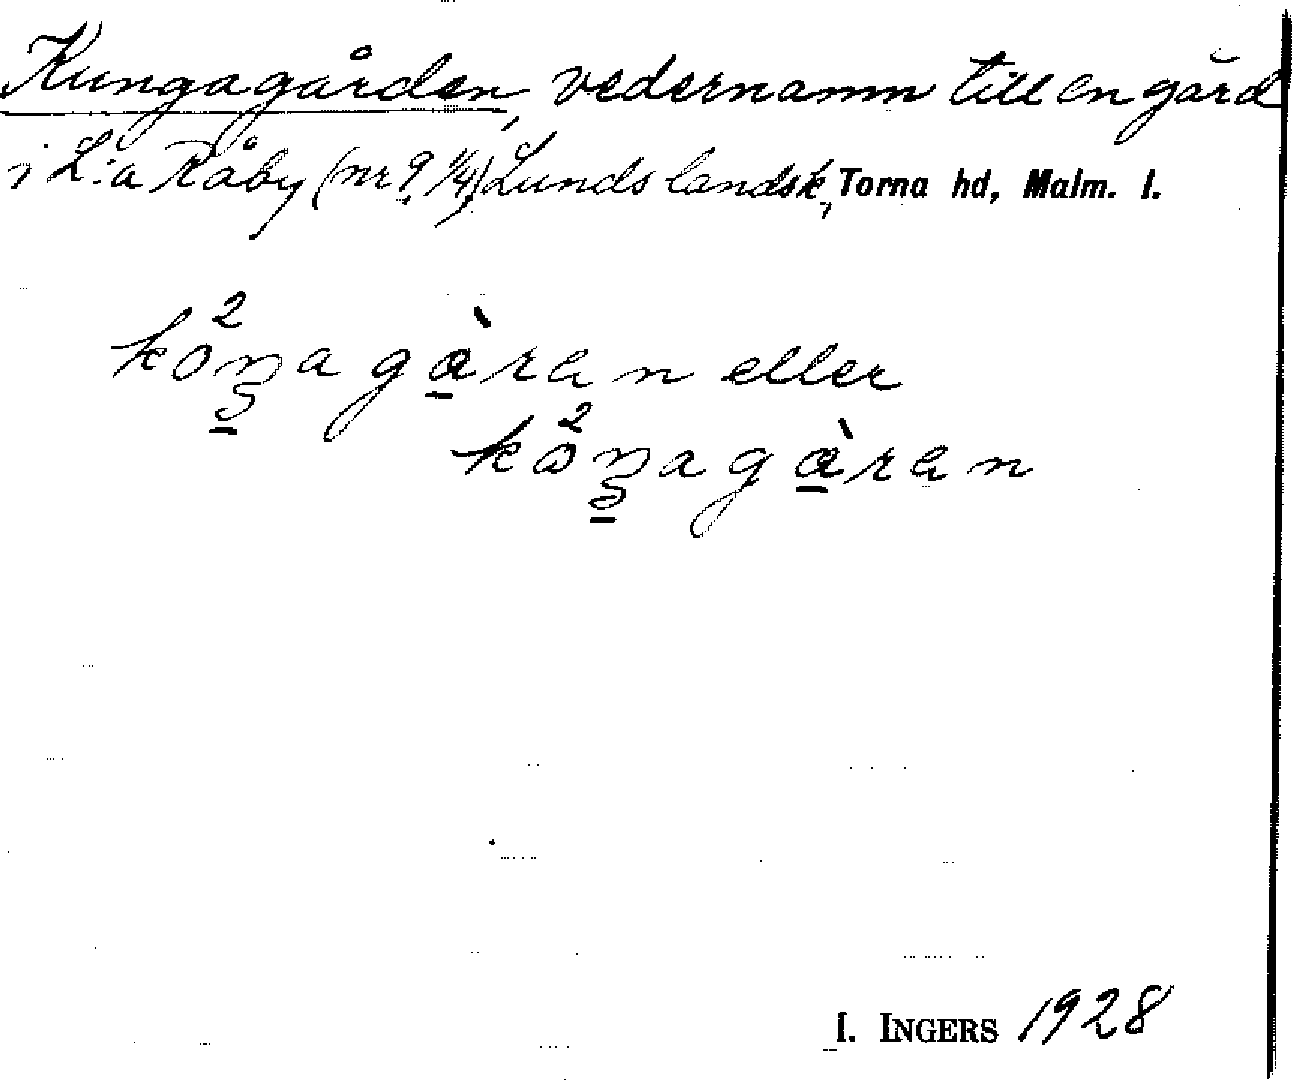 Kungagården, vedernamn till en gård
i L:a Råby (nr 9, 1/4), Lunds landsk, Torna hd, Malm. l.
kо̊²ŋagàran eller
kо̊²ŋagàran
I. INGERS 1928